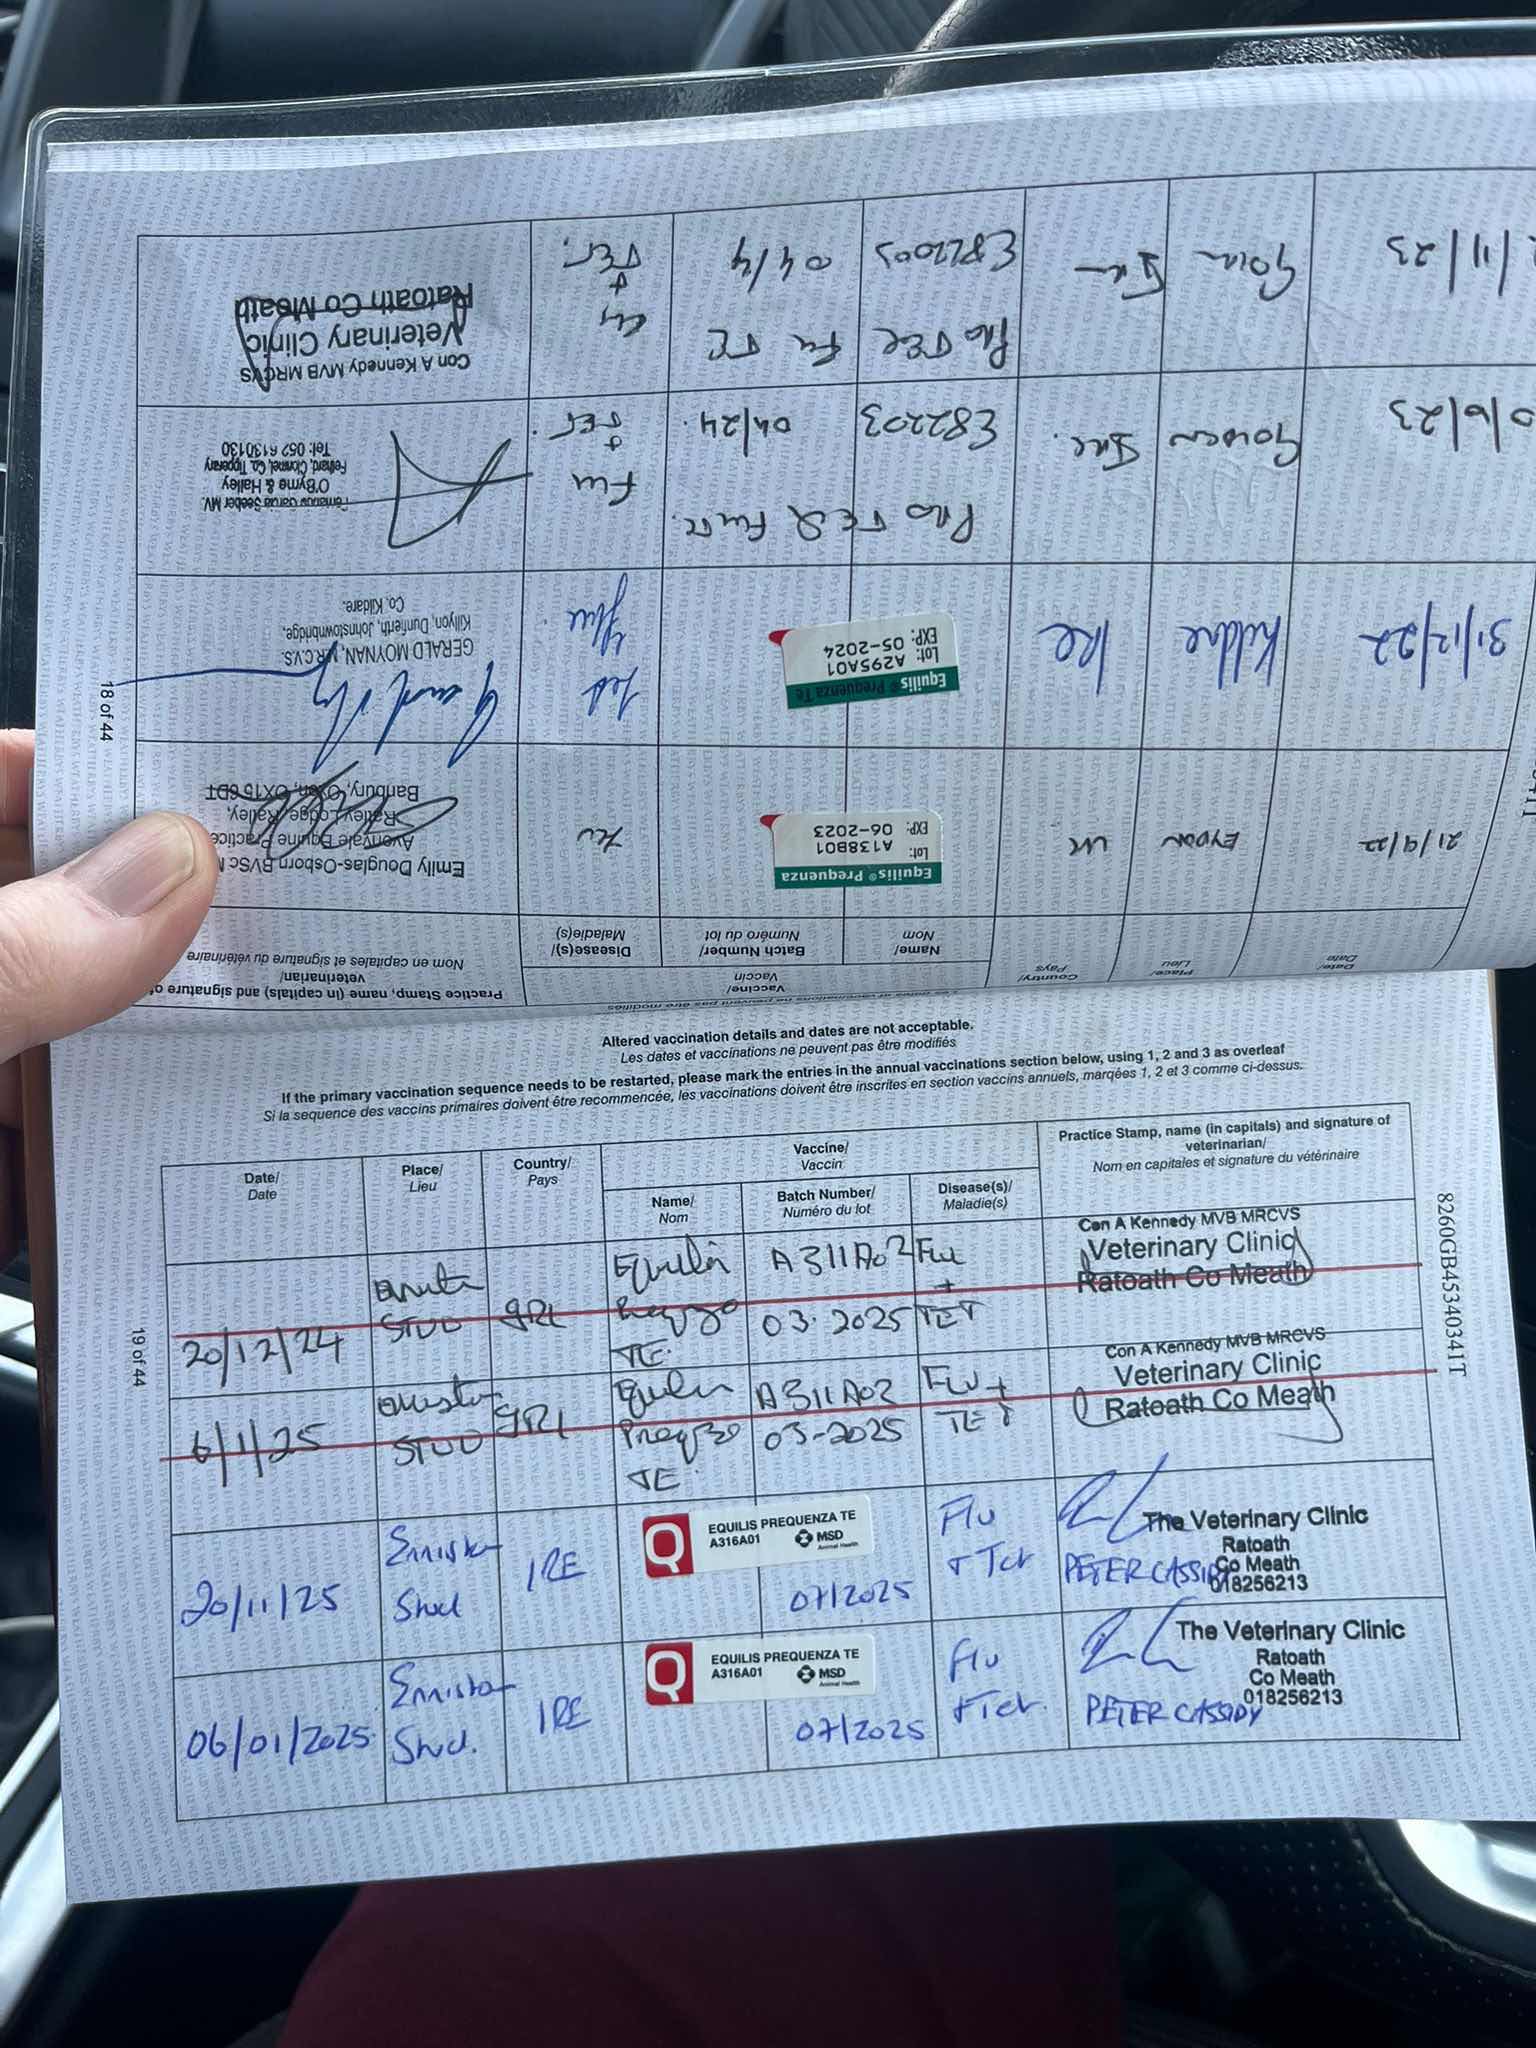 Practice Stamp, name (in capitals) and signature of
veterinarian/
Nom en capitales et signature du vétérinaire
Vaccine/
Vaccin
Disease(s)/
Maladie(s)
Batch Number/
Numéro du lot
Name/
Nom
Country/
Pays
Place/
Lieu
Date/
Date
21/9/22
EYDON
UK
Equilis® Prequenza
Lot: A138B01
EXP: 06-2023
Flu
Emily Douglas-Osborn BVSc
Avonvale Equine Practice
Ratley Lodge, Ratley,
Banbury, Oxon, OX15 6DT
31/12/22
Kildare
IRE
Equilis® Prequenza Te
Lot: A295A01
EXP: 05-2024
Tet
Flu
GERALD MOYNAN, M.R.C.V.S.
Killyon, Dunfierth, Johnstownbridge,
Co. Kildare.
18 of 44
/6/23
Gowran
Ire.
Pro TEQ Flu TE.
E82203
04/24.
Flu
+
TET.
O'Byrne & Halley
Fethard, Clonmel, Co. Tipperary
Tel: 052 6130130
/11/23
Pro TEQ Flu TE
E82203
04/4
+
TET.
Con A Kennedy MVB MRCVS
Veterinary Clinic
Ratoath Co Meath
Altered vaccination details and dates are not acceptable.
Les dates et vaccinations ne peuvent pas être modifiés
If the primary vaccination sequence needs to be restarted, please mark the entries in the annual vaccinations section below, using 1, 2 and 3 as overleaf
Si la sequence des vaccins primaires doivent être recommencée, les vaccinations doivent être inscrites en section vaccins annuels, marqées 1, 2 et 3 comme ci-dessus.
Date/
Date
Place/
Lieu
Country/
Pays
Vaccine/
Vaccin
Name/
Nom
Batch Number/
Numéro du lot
Disease(s)/
Maladie(s)
Practice Stamp, name (in capitals) and signature of
veterinarian/
Nom en capitales et signature du vétérinaire
20/12/24
STUD
IRL
TE.
A311A02
03.2025
Flu
+
TET
Con A Kennedy MVB MRCVS
Veterinary Clinic
Ratoath Co Meath
6/1/25
STUD
IRL
TE.
A311A02
03-2025
FLU +
TET
Con A Kennedy MVB MRCVS
Veterinary Clinic
Ratoath Co Meath
20/11/25
Stud
IRE
Q
EQUILIS PREQUENZA TE
A316A01
MSD
Animal Health
07/2025
Flu
+ Tet
PETER CASSIDY
The Veterinary Clinic
Ratoath
Co Meath
018256213
06/01/2025
Stud.
IRE
Q
EQUILIS PREQUENZA TE
A316A01
MSD
Animal Health
07/2025
Flu
+ Tet.
PETER CASSIDY
The Veterinary Clinic
Ratoath
Co Meath
018256213
19 of 44
8260GB45340341T